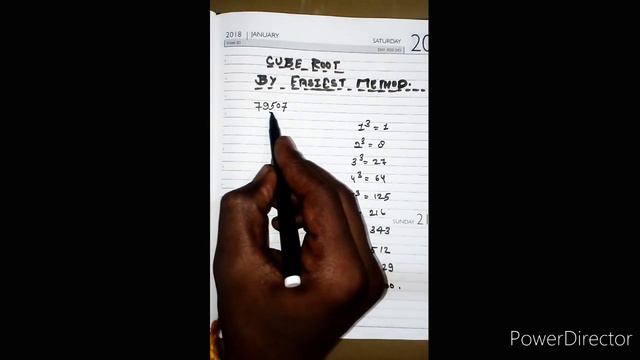 2018 | JANUARY
SATURDAY 20
CUBE ROOT
BY EASIEST METHOD.
79507
1³ = 1
2³ = 8
3³ = 27
4³ = 64
³ = 125
216
SUNDAY 21
343
512
29
PowerDirector